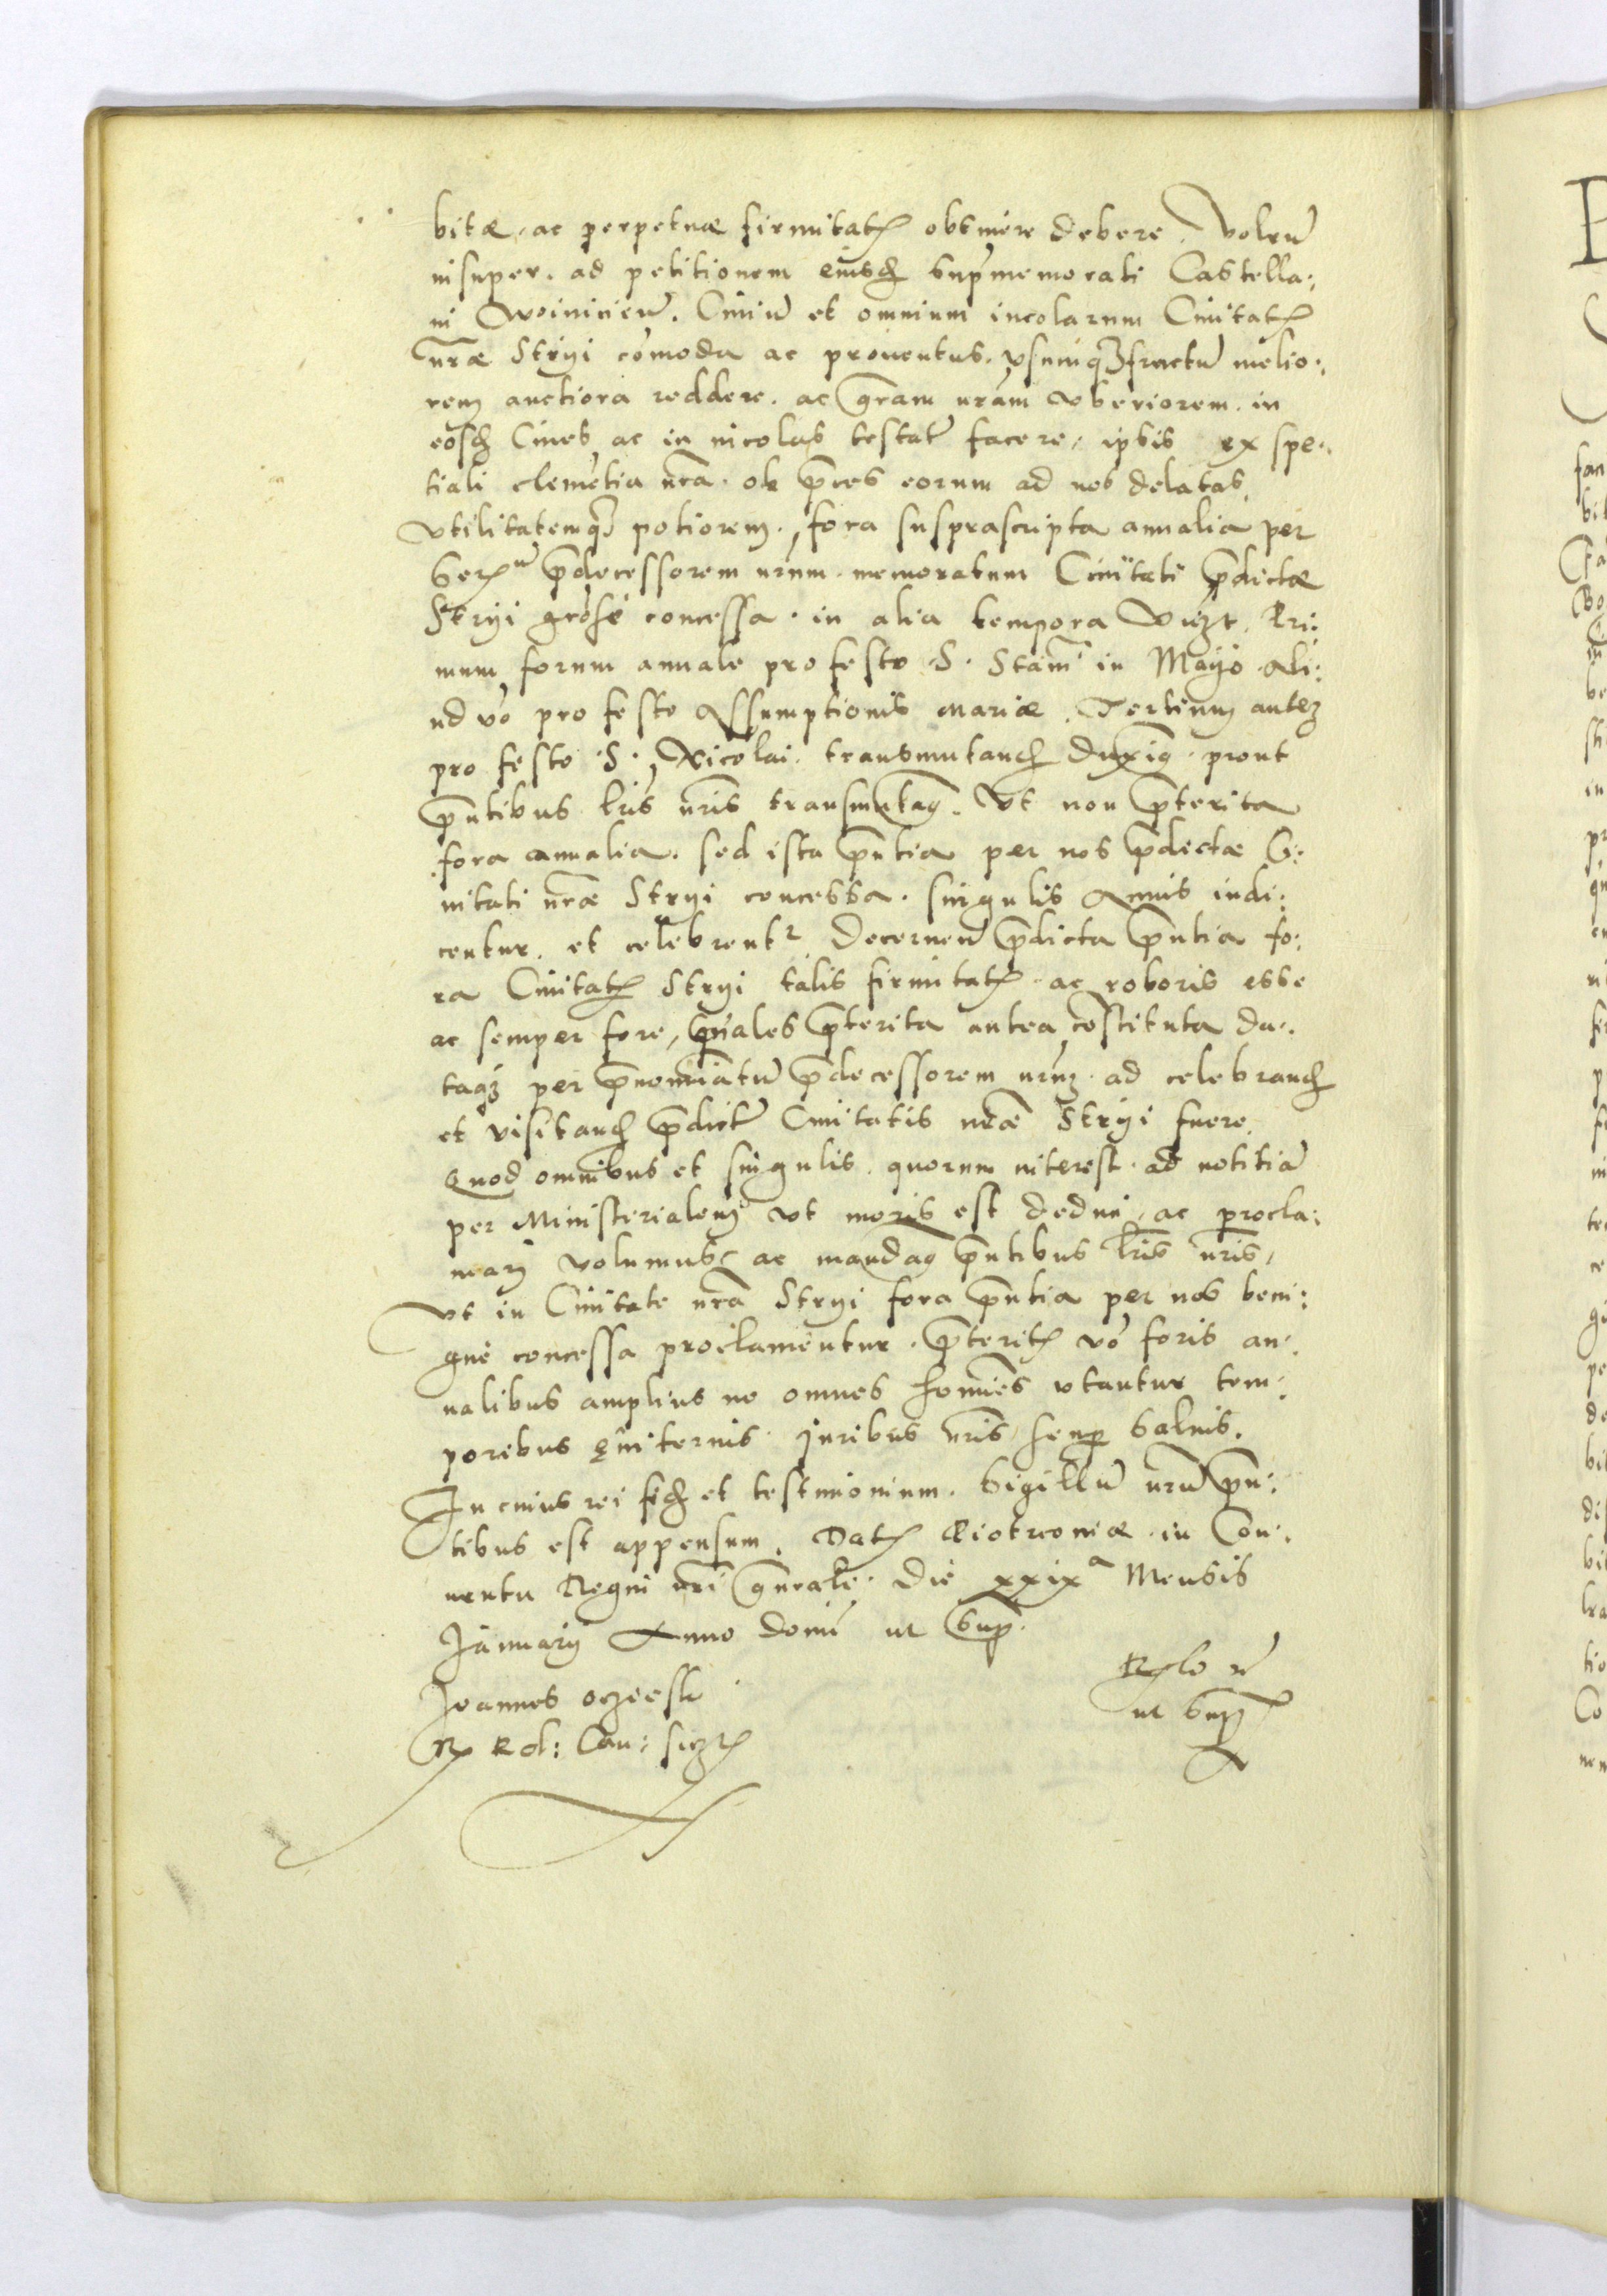 bitæ, ac perpetuæ firmitatꝭ obtinere debere. Volẽn
insuper. ad petitionem eiusđ sup̃memorati Castella:
ni Woiniciẽn. Ciuiũ et omnium incolarum Ciuitatꝭ
nr̃æ Stryi cõmoda ac prouentus. vsumq₃fructũ melio:
rem auctiora reddere. ac gr̃am nr̃am vberiorem. in
eosđ Ciues ac in incolas testatã facere, ipsis ex spe:
tiali clemẽtia nr̃a. ob p̃ces eorum ad nos delatas,
Vtilitatemq₃ potiorem, fora susprascripta annalia per
Ser^m p̃decessorem nr̃um. memoratum Ciuitati p̃dictæ
Stryi grõse concessa. in alia tempora Vicz. Pri:
mum forum annale pro festo S. Stañi in Mayo. Ali:
ud võ pro festo Assumptionis Mariæ. Tertium autẽ
pro festo S. Nicolai. transmutanđ duxim9. prout
p̃ntibus lr̃is nr̃is transmutam9. Vt non p̃terita
fora annalia. sed ista p̃ntia per nos p̃dictæ Ci:
uitati nr̃æ Stryi concessa. singulis Annis indi:
centur. et celebrentr Decernẽn p̃dicta p̃ntia fo:
ra Ciuitatꝭ Stryi talis firmitatꝭ ac roboris esse
ac semper fore, quales p̃terita antea cõstituta da:
taq₃ per p̃nominatũ p̃decessorem nr̃um. ad celebranđ
et visitanđ p̃dictæ Ciuitatis nr̃æ Stryi fuere.
Quod omnibus et singulis. quorum interest. ad notitiã
per Ministerialem vt moris est deduci, ac procla:
mari volumus, ac mandam9 p̃ntibus lr̃is nr̃is,
Vt in Ciuitate nr̃a Stryi fora p̃ntia per nos beni:
gnè concessa proclamentur. p̃teritꝭ võ foris an:
nalibus amplius ne omnes homĩes vtantur tem:
poribus ęuiternis. Juribus nr̃is semp̃ saluis.
In cuius rei fiđ et testimonium. Sigillũ nr̃ũ p̃n:
tibus est appensum. Datꝭ Piotrcouiæ. in Con:
uentu Regni nr̃i gñrale. Die xxix^a Mensis
January Anno domĩ ut sup̃.
Joannes oczieski
R. Pol: Can:
Rlo
ut sup̃